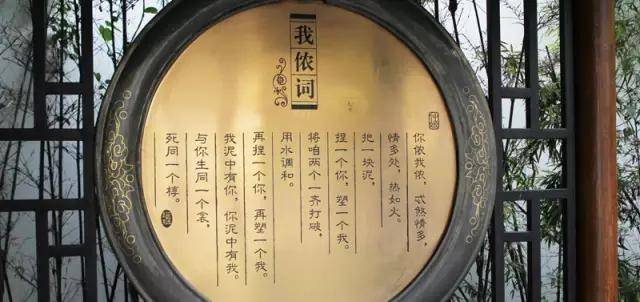 我侬词
你侬我侬，忒煞情多，
情多处，热如火。
把一块泥，
捏一个你，塑一个我。
将咱两个一齐打破，
用水调和。
再捏一个你，再塑一个我。
我泥中有你，你泥中有我。
与你生同一个衾，
死同一个椁。